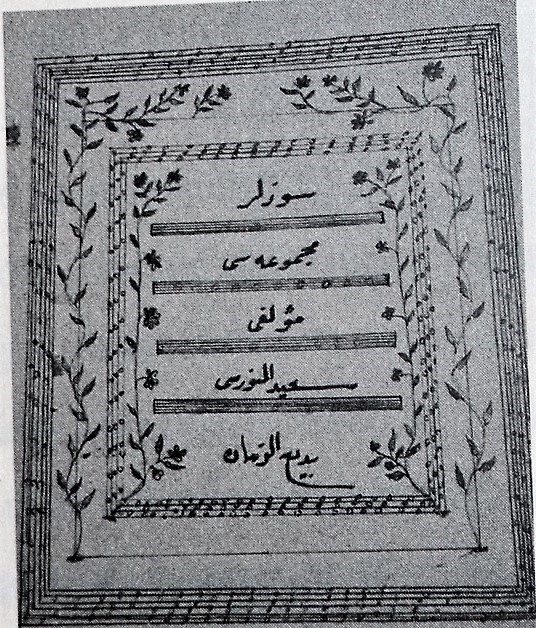 سوزلر
مجموعه سی
مؤلفی
سعيد النورسی
بديع الزمان